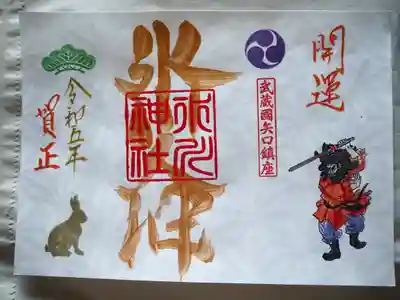 開運
武蔵國矢口鎮座
氷川
神社
令和五年
賀正